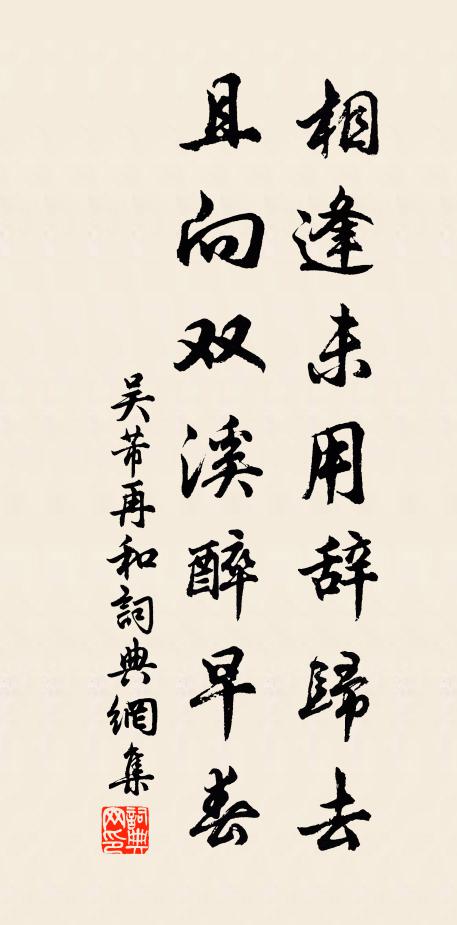 相逢未用辞歸去
且向双溪醉早春
吴芾再和詞典網集
詞典
网印